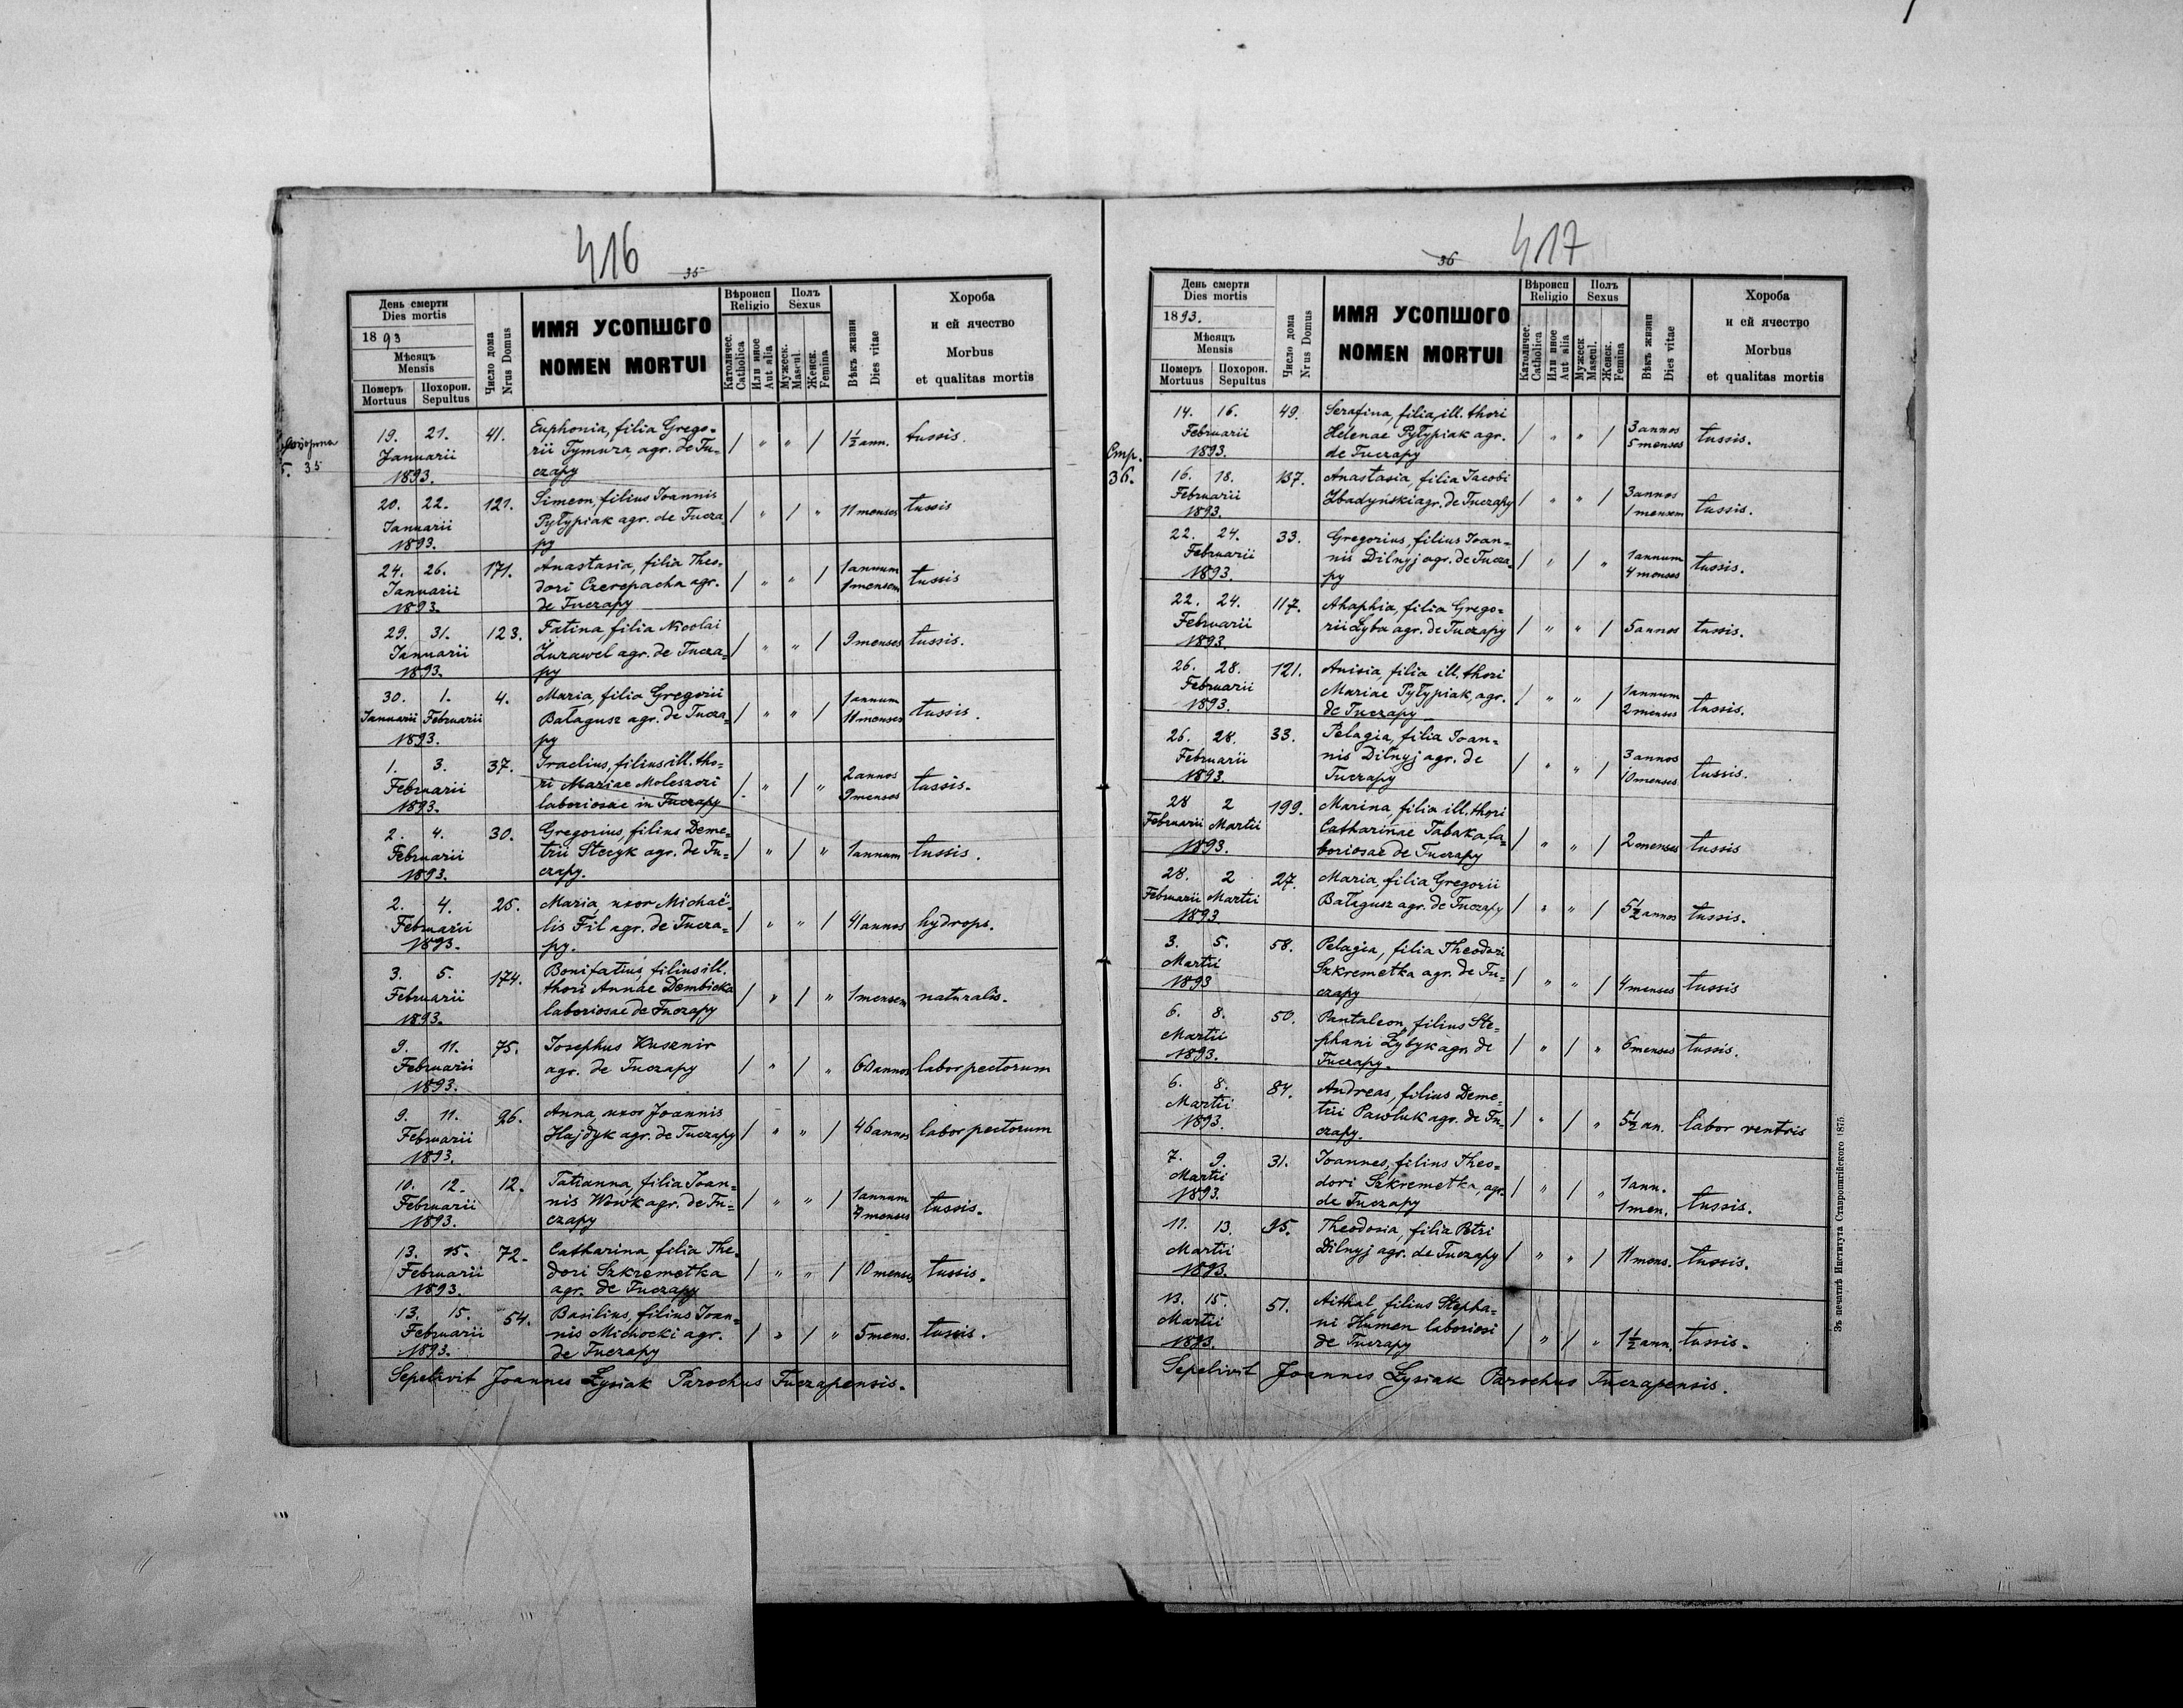 416
35
День смерти
Dies mortis
1893
Мѣсяцъ
Mensis
Померъ Похорон.
Mortuus Sepultus
Число дома
Nrus Domus
ИМЯ УСОПШОГО
NOMEN MORTUI
Вѣроисп
Religio
Католичес.
Catholica
Или иное
Aut alia
Полъ
Sexus
Мужеск.
Mascul.
Женск.
Femina
Вѣкъ жизни
Dies vitae
Хороба
и ей ячество
Morbus
et qualitas mortis
35
19. 21. 41. Euphonia, filia Grego=
Januarii rii Tymura, agr. de Tu= / " " / 1½ ann. tussis.
1893. czapy
20. 22. 121. Simeon, filius Joannis
Januarii Pyłypiak agr. de Tucza= / " / " 11 menses tussis
1893. py
24. 26. 171. Anastasia, filia Theo= 1 annum
Januarii dori Czerepacha agr. / " " / 1 mensem tussis
1893. de Tuczapy
29. 31. 123. Fatina, filia Nicolai
Januarii Żurawel agr. de Tucza= / " " / 9 menses tussis.
1893. py
30. 1. 4. Maria, filia Gregorii 1 annum
Januarii Februarii Bałagusz agr. de Tucza= / " " / 11 menses tussis.
1893. py
1. 3. 37. Iraclius, filius ill. tho=
Februarii ri Mariae Moleszozi / " / " 2 annos 9 menses tussis.
1893. laboriosae in Tuczapy
2. 4. 30. Gregorius, filius Deme=
Februarii trii Stecyk agr. de Tu= / " / " 1 annum tussis.
1893. czapy.
2. 4. 25. Maria, uxor Michaë=
Februarii lis Fil agr. de Tucza= / " " / 41 annos hydrops.
1893. py.
3. 5. 174. Bonifatius, filius ill.
Februarii thori Annae Dembicka / " / " 1 mensem naturalis.
1893. laboriosae de Tuczapy
9. 11. 75. Josephus Kusznir
Februarii agr. de Tuczapy / " / " 60 annos labor pectorum
1893.
9. 11. 26. Anna, uxor Joannis
Februarii Hajdyk agr. de Tuczapy / " " / 46 annos labor pectorum
1893.
10. 12. 12. Tatianna, filia Joan= 1 annum
Februarii nis Wowk agr. de Tu= / " " / menses tussis.
1893. czapy
13. 15. 72. Catharina, filia The=
Februarii dori Szkremetka / " " / 10 menses tussis.
1893. agr. de Tuczapy
13. 15. 54. Basilius, filius Joan=
Februarii nis Michocki agr. / " / " 5 mens. tussis.
1893. de Tuczapy
Sepelivit Joannes Łysiak Parochus Tuczapensis.
417
36
День смерти
Dies mortis
1893.
Мѣсяцъ
Mensis
Померъ Похорон.
Mortuus Sepultus
Число дома
Nrus Domus
ИМЯ УСОПШОГО
NOMEN MORTUI
Вѣроисп
Religio
Католичес.
Catholica
Или иное
Aut alia
Полъ
Sexus
Мужеск
Mascul.
Женск.
Femina
Вѣкъ жизни
Dies vitae
Хороба
и ей ячество
Morbus
et qualitas mortis
Стр.
36.
14. 16. 49. Serafina, filia ill. thori
Februarii Helenae Pyłypiak agr. / " " / 3 annos 5 menses tussis.
1893. de Tuczapy
16. 18. 137. Anastasia, filia Jacobi 3 annos
Februarii Zbadyński agr. de Tuczapy / " " / 1 mensem tussis.
1893.
22. 24. 33. Gregorius, filius Joan=
Februarii nis Dilnyj agr. de Tucza= / " / " 1 annum 4 menses tussis.
1893. py
22. 24. 117. Ahaphia, filia Grego=
Februarii rii Łyba agr. de Tuczapy / " " / 5 annos tussis.
1893.
26. 28. 121. Anisia, filia ill. thori
Februarii Mariae Pyłypiak, agr. / " " / 1 annum 2 menses tussis.
1893. de Tuczapy
26. 28. 33. Pelagia, filia Joan=
Februarii nis Dilnyj agr. de / " " / 3 annos 10 menses tussis.
1893. Tuczapy
28 2 199. Marina, filia ill. thori
Februarii Martii Catharinae Tabaka, la= / " " / 2 menses tussis
1893. boriosae de Tuczapy
28. 2 27. Maria, filia Gregorii
Februarii Martii Bałagusz agr. de Tuczapy / " " / 5½ annos tussis.
1893
3. 5. 58. Pelagia, filia Theodori
Martii Szkremetka agr. de Tu= / " " / 4 menses tussis
1893 czapy
6. 8. 50. Pantaleon, filius Ste=
Martii phani Łybyk agr. de / " / " 6 menses tussis.
1893. Tuczapy.
6. 8. 84. Andreas, filius Deme=
Martii trii Pawluk agr. de Tu= / " / " 5½ an. labor ventris
1893. czapy.
7. 9. 31. Joannes, filius Theo=
Martii dori Szkremetka, agr. / " / " 1 ann. 1 men. tussis.
1893. de Tuczapy
11. 13. 25. Theodosia, filia Petri
Martii Dilnyj agr. de Tuczapy / " " / 11 mens. tussis.
1893.
13. 15. 51. Aithal, filius Stepha=
Martii ni Humen laboriosi / " / " 1½ ann. tussis.
1893. de Tuczapy
Sepelivit Joannes Łysiak Parochus Tuczapensis.
Зъ печатнѣ Института Ставропигійского 1875.